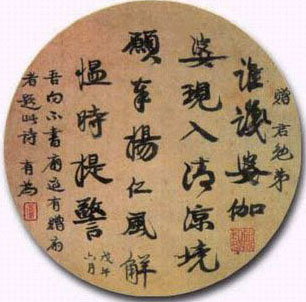 贈君勉弟
誰識婆伽
婆現入清涼境
願奉楊仁風解
慍時提警
戊午
六月
吾向不書扇 有贈扇
者題此詩 有為